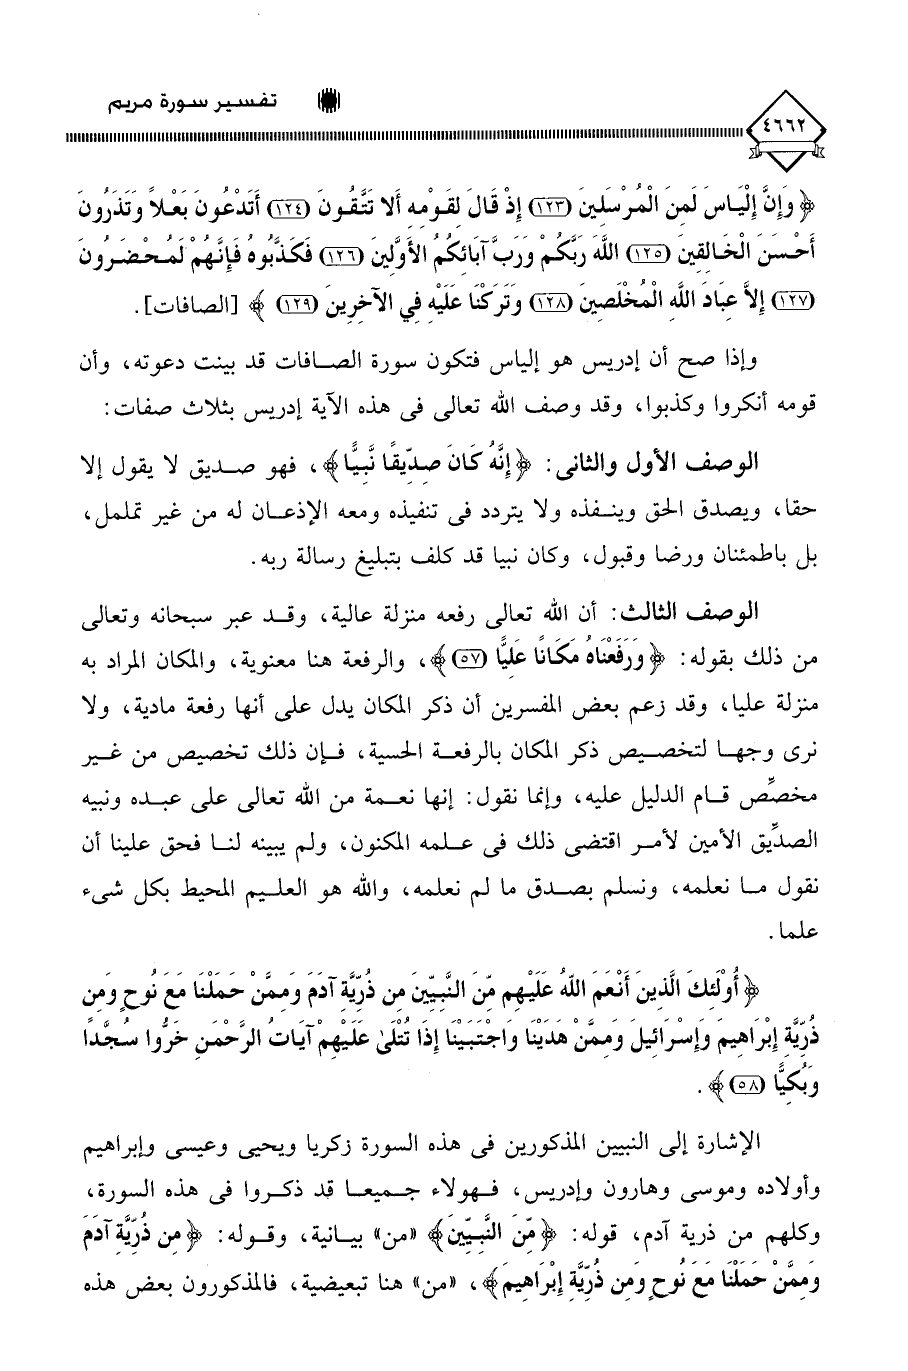 ٤٦٦٢
تفسير سورة مريم
﴿ وَإِنَّ إِلْيَاسَ لَمِنَ الْمُرْسَلِينَ (١٢٣) إِذْ قَالَ لِقَوْمِهِ أَلا تَتَّقُونَ (١٢٤) أَتَدْعُونَ بَعْلاً وَتَذَرُونَ
أَحْسَنَ الْخَالِقِينَ (١٢٥) اللَّهَ رَبَّكُمْ وَرَبَّ آبَائِكُمُ الأَوَّلِينَ (١٢٦) فَكَذَّبُوهُ فَإِنَّهُمْ لَمُحْضَرُونَ
(١٢٧) إِلاَّ عِبَادَ اللَّهِ الْمُخْلَصِينَ (١٢٨) وَتَرَكْنَا عَلَيْهِ فِي الآخِرِينَ (١٢٩) ﴾ [الصافات].
وإذا صح أن إدريس هو إلياس فتكون سورة الصافات قد بينت دعوته، وأن
قومه أنكروا وكذبوا، وقد وصف الله تعالى فى هذه الآية إدريس بثلاث صفات:
الوصف الأول والثانى: ﴿ إِنَّهُ كَانَ صِدِّيقًا نَّبِيًّا ﴾، فهو صديق لا يقول إلا
حقا، ويصدق الحق وينفذه ولا يتردد فى تنفيذه ومعه الإذعان له من غير تململ،
بل باطمئنان ورضا وقبول، وكان نبيا قد كلف بتبليغ رسالة ربه.
الوصف الثالث: أن الله تعالى رفعه منزلة عالية، وقد عبر سبحانه وتعالى
من ذلك بقوله: ﴿ وَرَفَعْنَاهُ مَكَانًا عَلِيًّا (٥٧) ﴾، والرفعة هنا معنوية، والمكان المراد به
منزلة عليا، وقد زعم بعض المفسرين أن ذكر المكان يدل على أنها رفعة مادية، ولا
نرى وجها لتخصيص ذكر المكان بالرفعة الحسية، فإن ذلك تخصيص من غير
مخصِّص قام الدليل عليه، وإنما نقول: إنها نعمة من الله تعالى على عبده ونبيه
الصدِّيق الأمين لأمر اقتضى ذلك فى علمه المكنون، ولم يبينه لنا فحق علينا أن
نقول ما نعلمه، ونسلم بصدق ما لم نعلمه، والله هو العليم المحيط بكل شىء
علما.
﴿ أُوْلَئِكَ الَّذِينَ أَنْعَمَ اللَّهُ عَلَيْهِم مِّنَ النَّبِيِّينَ مِن ذُرِّيَّةِ آدَمَ وَمِمَّنْ حَمَلْنَا مَعَ نُوحٍ وَمِن
ذُرِّيَّةِ إِبْرَاهِيمَ وَإِسْرَائِيلَ وَمِمَّنْ هَدَيْنَا وَاجْتَبَيْنَا إِذَا تُتْلَىٰ عَلَيْهِمْ آيَاتُ الرَّحْمَنِ خَرُّوا سُجَّدًا
وَبُكِيًّا (٥٨) ﴾.
الإشارة إلى النبيين المذكورين فى هذه السورة زكريا ويحيى وعيسى وإبراهيم
وأولاده وموسى وهارون وإدريس، فهولاء جميعا قد ذكروا فى هذه السورة،
وكلهم من ذرية آدم، قوله: ﴿ مِّنَ النَّبِيِّينَ ﴾ «من» بيانية، وقوله: ﴿ مِن ذُرِّيَّةِ آدَمَ
وَمِمَّنْ حَمَلْنَا مَعَ نُوحٍ وَمِن ذُرِّيَّةِ إِبْرَاهِيمَ ﴾، «من» هنا تبعيضية، فالمذكورون بعض هذه